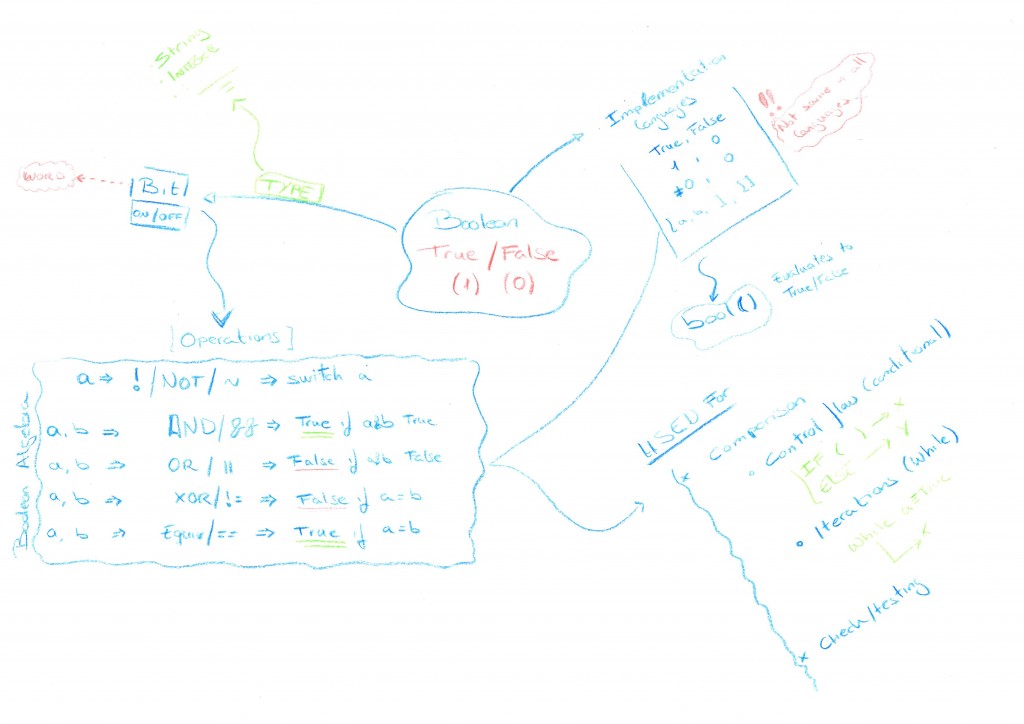 String
INTEGER
WORD
Bit
ON/OFF
TYPE
Boolean
True / False
(1) (0)
Implementation
Languages
True, False
1 , 0
≠0 , 0
[a,b, ], []
!!
Not same in all
languages
bool()
Evaluates to
True/False
[Operations]
Boolean Algebra
a ⇒ ! / NOT / ~ ⇒ switch a
a, b ⇒ AND/&& ⇒ True if a&b True
a, b ⇒ OR / || ⇒ False if a&b False
a, b ⇒ XOR/!= ⇒ False if a=b
a, b ⇒ Equiv/== ⇒ True if a=b
USED For
x Comparison
• Control flow (conditional)
IF ( ) → X
ELSE → Y
• Iterations (While)
While a=True
→ X
x Check/testing